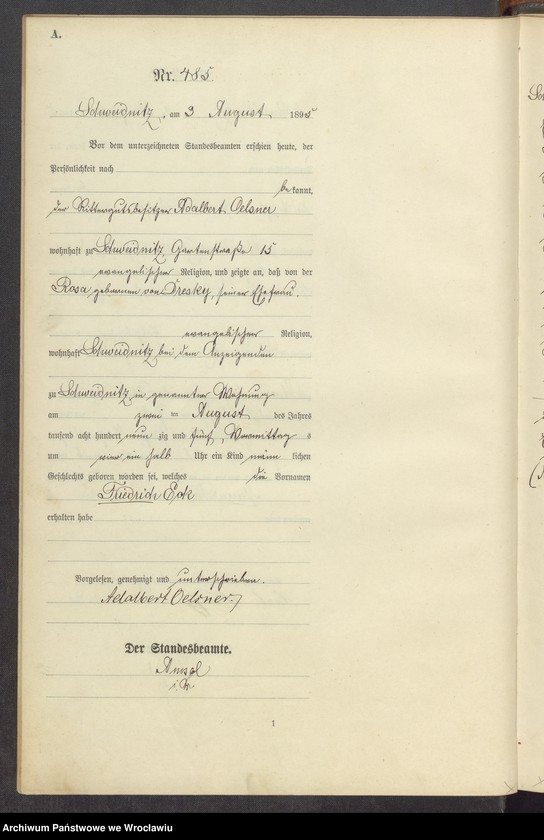 A.
Nr. 485
Schweidnitz, am 3 August 1895
Vor dem unterzeichneten Standesbeamten erschien heute, der
Persönlichkeit nach
bekannt,
der Rittergutsbesitzer Adalbert Oelsner
wohnhaft zu Schweidnitz, Gartenstraße 15
evangelischer Religion, und zeigte an, daß von der
Rosa geborenen von Dresky, seiner Ehefrau,
evangelischer Religion,
wohnhaft Schweidnitz bei dem Anzeigenden
zu Schweidnitz, in genannter Wohnung
am zwei ten August des Jahres
tausend acht hundert neun zig und fünf, Vormittag s
um vier ein halb Uhr ein Kind männ lichen
Geschlechts geboren worden sei, welches die Vornamen
Friedrich Eck
erhalten habe
Vorgelesen, genehmigt und unterschrieben.
Adalbert Oelsner.
Der Standesbeamte.
i. V.
1
Archiwum Państwowe we Wrocławiu